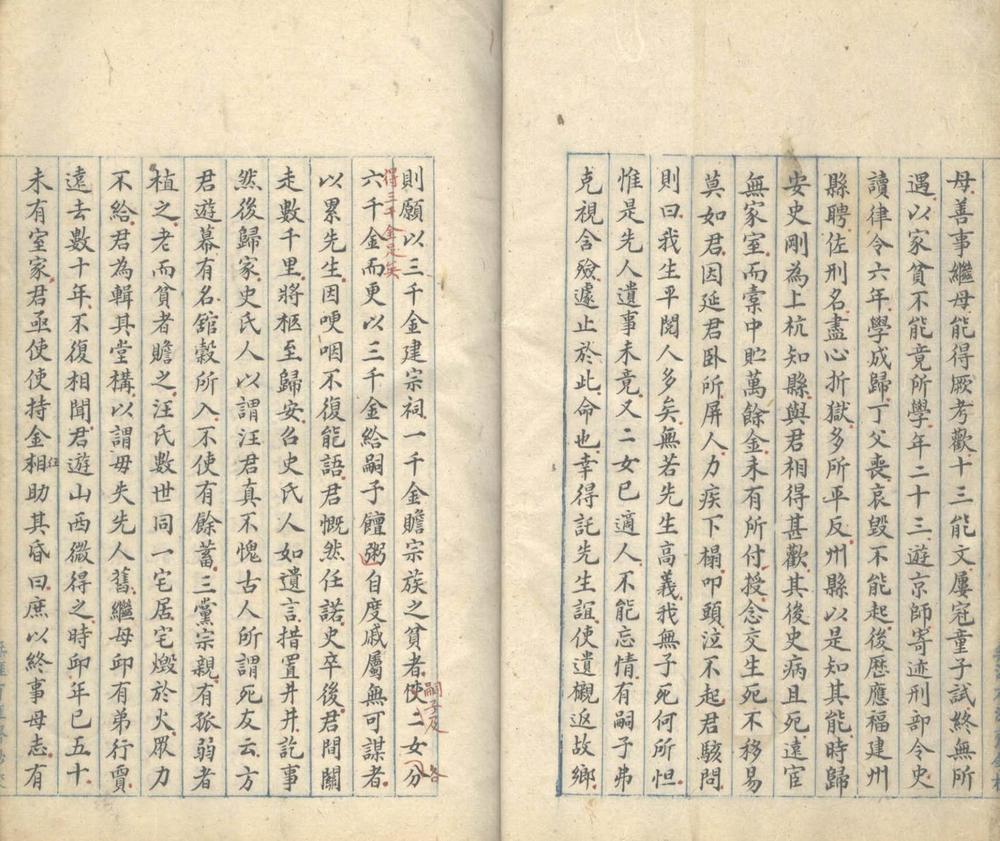 母善事繼母能得厥考歡十三能文屢冠童子試終無所
遇以家貧不能竟所學年二十三遊京師寄迹刑部令史
讀律令六年學成歸丁父喪哀毀不能起後歷應福建州
縣聘佐刑名盡心折獄多所平反州縣以是知其能時歸
安史剛為上杭知縣與君相得甚歡其後史病且死遠宦
無家室而橐中貯萬餘金未有所付授念交生死不移易
莫如君因延君卧所屏人力疾下榻叩頭泣不起君駭問
則曰我生平閱人多矣無若先生高義我無子死何所怛
惟是先人遺事未竟又二女已適人不能忘情有嗣子弗
克視含殮遽止於此命也幸得託先生誼使遺櫬返故鄉
則願以三千金建宗祠一千金贍宗族之貧者使二女分
嗣子及
各
六千金而更以三千金給嗣子饘粥自度戚屬無可謀者
得三千金足矣
以累先生因哽咽不復能語君慨然任諾史卒後君間關
走數千里將柩至歸安召史氏人如遺言措置井井訖事
然後歸家史氏人以謂汪君真不愧古人所謂死友云方
君遊幕有名館穀所入不使有餘蓄三黨宗親有孤弱者
植之老而貧者贍之汪氏數世同一宅居宅燬於火眾力
不給君為輯其堂構以謂毋失先人舊繼母卬有弟行賈
遠去數十年不復相聞君遊山西微得之時卬年已五十
未有室家君亟使使持金相助其昏曰庶以終事母志有